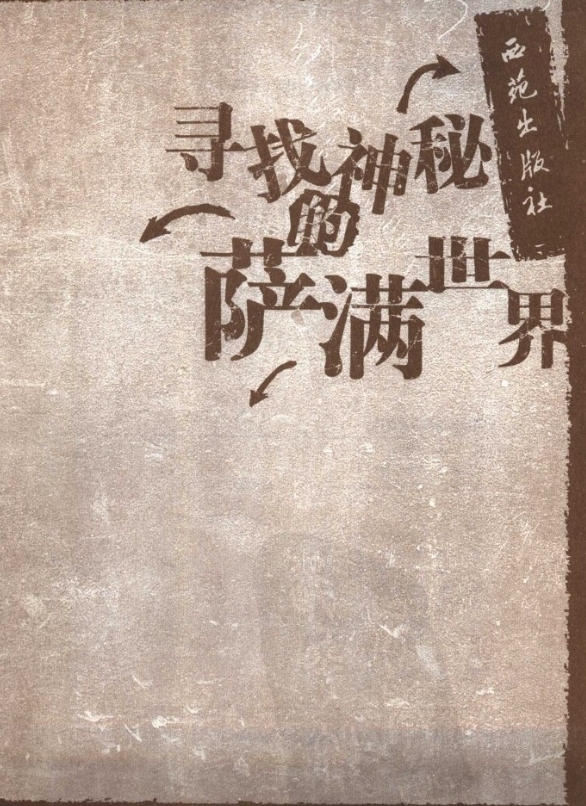 西苑出版社
寻找神秘
的
萨满世界